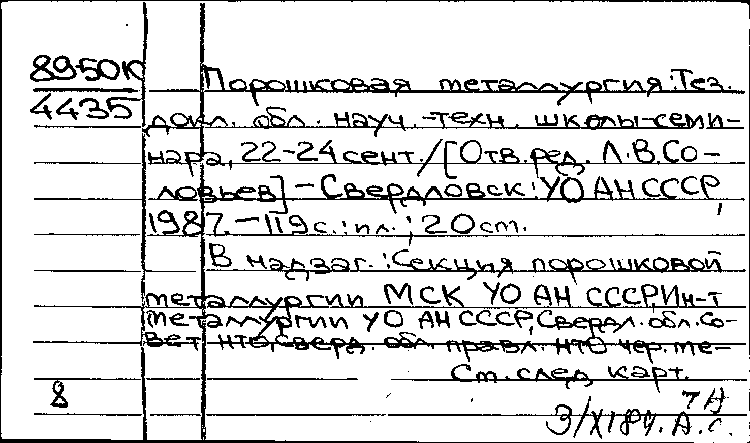 89-50К
4435
Порошковая металлургия: Тез.
докл. обл. науч.-техн. школы-семи-
нара, 22-24 сент./[Отв. ред. Л.В. Со-
ловьев] - Свердловск: УО АН СССР,
1987. - 119 с.: ил.; 20 см.
В надзаг.: Секция порошковой
металлургии МСК УО АН СССР, Ин-т
металлургии УО АН СССР, Свердл. обл. Со-
вет НТО, Сверд. обл. правл. НТО чер. ме-
См. след. карт.
8
7Н
3/XI 89. А.С.